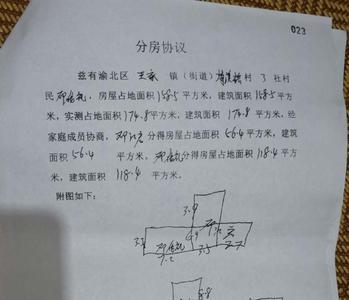 023
分房协议
兹有渝北区 王家 镇(街道) 村 3 社村
民 邓 ,房屋占地面积 158.5 平方米,建筑面积 158.5 平方
米,实测占地面积 174.8 平方米,建筑面积 174.8 平方米,经
家庭成员协商, 邓 分得房屋占地面积 56.4 平方米,建筑
面积 56.4 平方米。 邓 分得房屋占地面积 118.4 平方
米,建筑面积 118.4 平方米。
附图如下:
3.9
邓
7.2 3.5
8.8